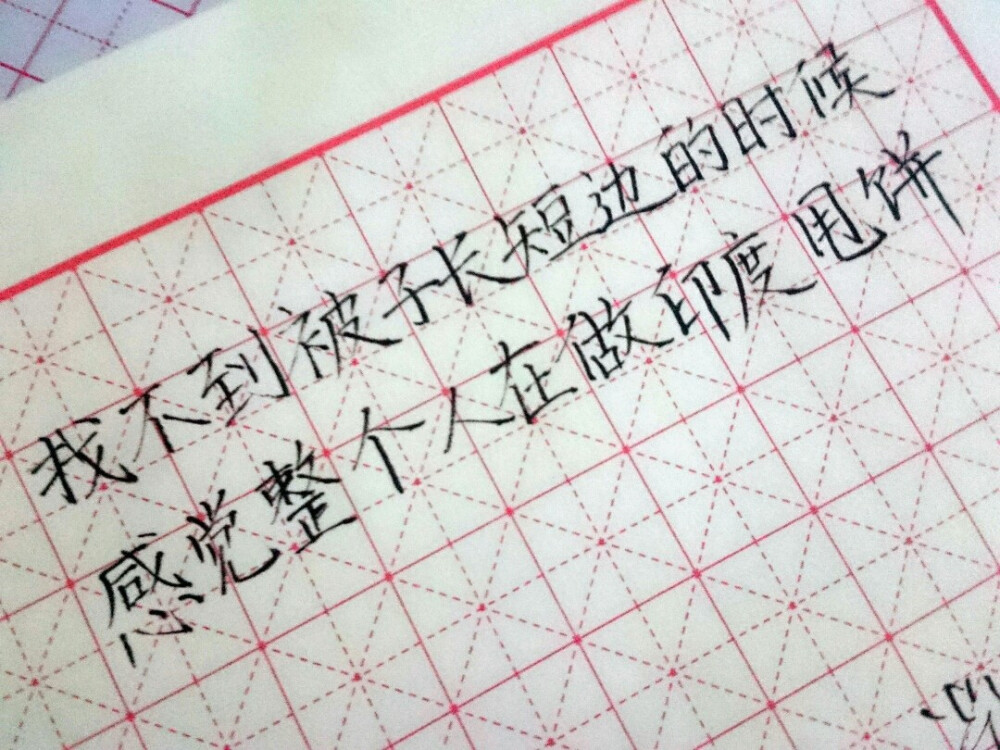 找不到被子长短边的时候
感觉整个人在做印度甩饼